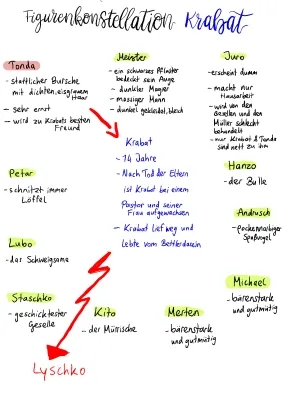 Figurenkonstellation Krabat
Tonda
- stattlicher Bursche
mit dichtem, eisgrauem
Haar
- sehr ernst
- wird zu Krabats besten
Freund
Meister
- ein schwarzes Pflaster
bedeckt sein Auge
- dunkler Magier
- massiger Mann
- dunkel gekleidet, bleich
Juro
- erscheint dumm
- macht nur
Hausarbeit
- wird von den
Gesellen und den
Müller schlecht
behandelt
- nur Krabat & Tonda
sind nett zu ihm
Krabat
- 14 Jahre
- Nach Tod der Eltern
ist Krabat bei einem
Pastor und seiner
Frau aufgewachsen
- Krabat lief weg und
lebte vom Bettlerdasein
Petar
- schnitzt immer
Löffel
Hanzo
- der Bulle
Andrusch
- pockennarbiger
Spaßvogel
Lubo
- das Schweigsame
Staschko
- geschicktester
Geselle
Kito
- der Mürrische
Merten
- bärenstark
und gutmütig
Michael
- bärenstark
und gutmütig
Lyschko